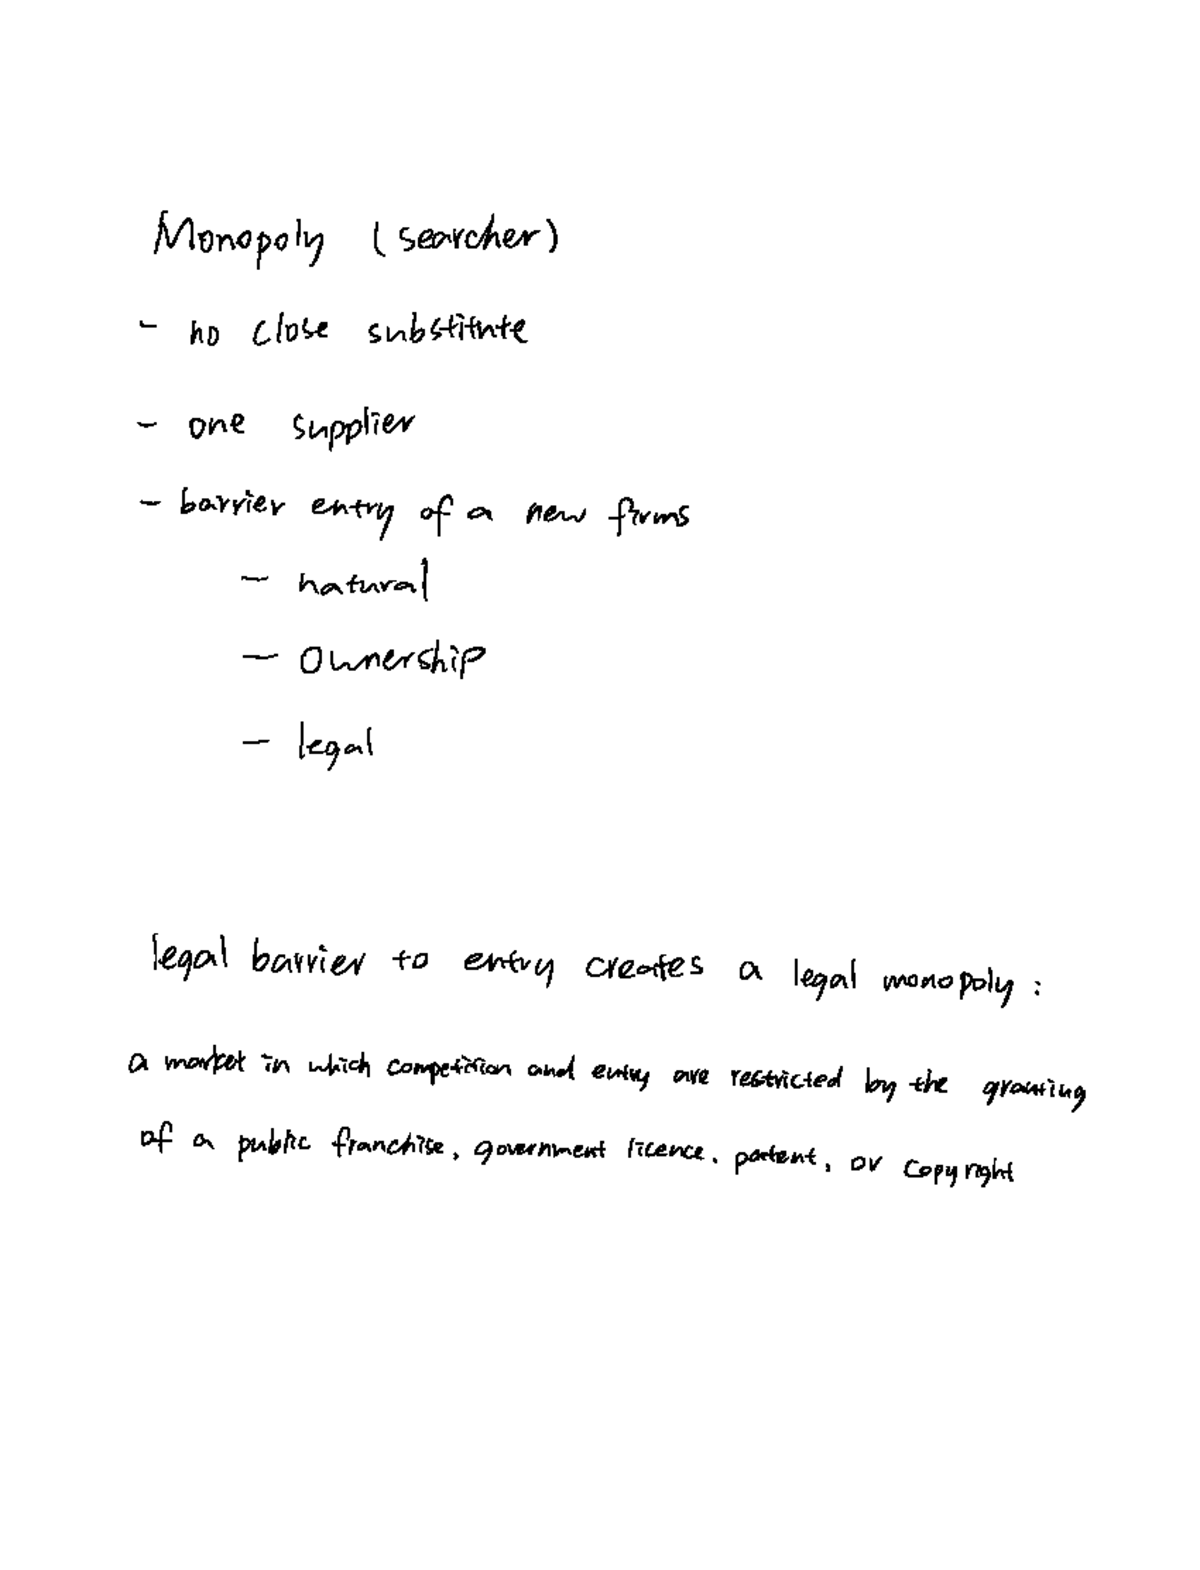 Monopoly (searcher)
- no close substitute
- one supplier
- barrier entry of a new firms
- natural
- Ownership
- legal
legal barrier to entry creates a legal monopoly :
a market in which competition and entry are restricted by the granting
of a public franchise, government licence, patent, or copyright